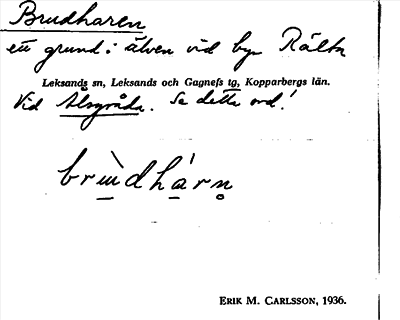 Brudharen
ett grund i älven vid byn Rälta
Leksands sn, Leksands och Gagnefs tg, Kopparbergs län.
Vid Ålsgråda. Se detta ord!
brudharn
ERIK M. CARLSSON, 1936.